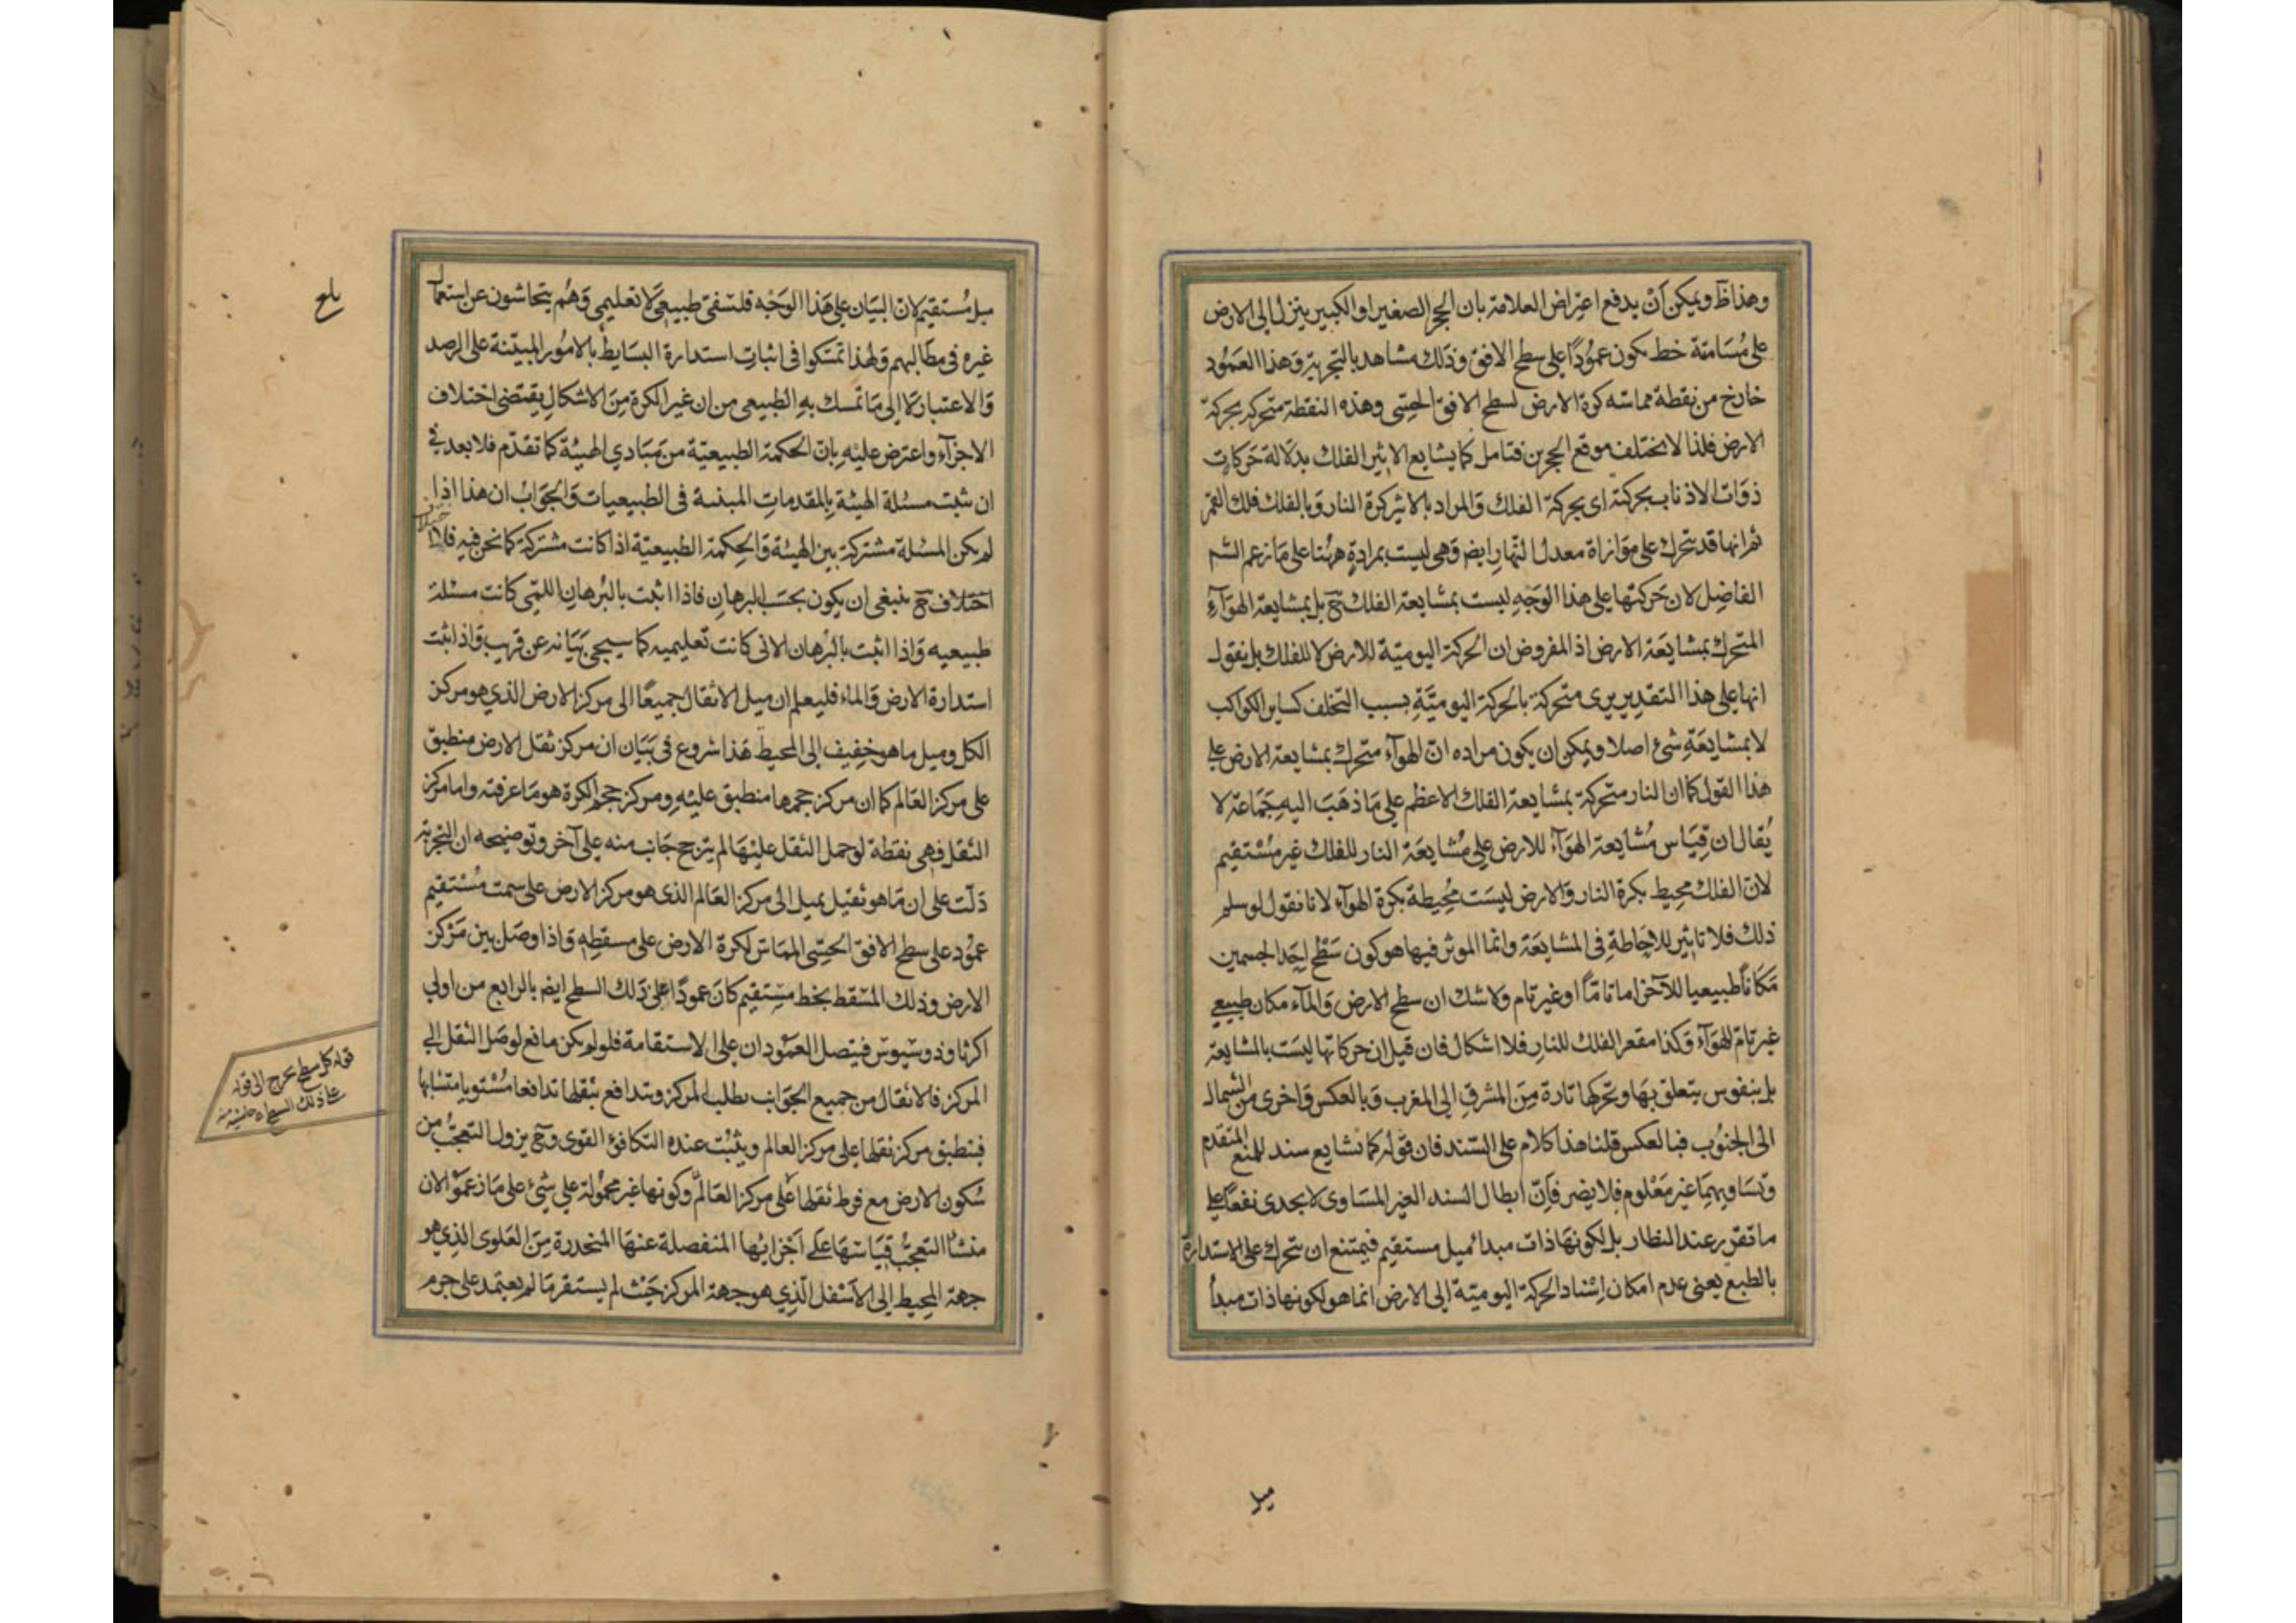 وهذا ظ ويمكن أن يدفع اعتراض العلامة بان الحجر الصغير او الكبير ينزل الى الارض
على مسامتة خط يكون عمودًا على سطح الافق وذلك مشاهد بالتجربة وهذا العمود
خارج من نقطة مماسة كرة الارض لسطح الافق الحسى وهذه النقطة متحركة بحركة
الارض فلذا لا يختلف موقع الحجرين فتامل كما يشايع الاثير الفلك بدلالة حركات
ذوات الاذناب بحركته اى بحركة الفلك والمراد بالاثير كرة النار وبالفلك فلك القمر
ثم انها قد تتحرك على موازاة معدل النهار ايض وهى ليست بمرادة ههنا على ما زعم الشـ
الفاضل لان حركتها على هذا الوجه ليست بمشايعة الفلك ح بل بمشايعة الهوآء
المتحرك بمشايعة الارض اذ المفروض ان الحركة اليومية للارض لا للفلك بل نقول
انها على هذا التقدير يرى متحركة بالحركة اليومية بسبب التخلف كساير الكواكب
لا بمشايعة شئ اصلا ويمكن ان يكون مراده ان الهوآء متحرك بمشايعة الارض على
هذا القول كما ان النار متحركة بمشايعة الفلك الاعظم على ما ذهب اليه جماعة لا
يقال ان قياس مشايعة الهوآء للارض على مشايعة النار للفلك غير مستقيم
لان الفلك محيط بكرة النار والارض ليست محيطة بكرة الهوآء لانا نقول لو سلم
ذلك فلا تاثير للاحاطة فى المشايعة وانما الموثر فيها هو كون سطح احد الجسمين
مكانًا طبيعيا للآخر اما تامًا او غير تام ولا شك ان سطح الارض والمآء مكان طبيعي
غير تام للهوآء وكذا مقعر الفلك للنار فلا اشكال فان قيل ان حركاتها ليست بالمشايعة
بل بنفوس يتعلق بها وتحركها تارة من المشرق الى المغرب وبالعكس واخرى من الشمال
الى الجنوب فبالعكس قلنا هذا كلام على السند فان قوله كما تشايع سند للمنع المتقدم
وتساويهما غير معلوم فلا يضر فان ابطال السند الغير المساوى لا يجدى نفعًا على
ما تقرر عند النظار بل لكونها ذات مبدأ ميل مستقيم فيمتنع ان تتحرك على الاستدارة
بالطبع يعنى عدم امكان اسناد الحركة اليومية الى الارض انما هو لكونها ذات مبدأ
ميل
ميل مستقيم لان البيان على هذا الوجه فلسفى طبيعى لا تعليمى وهم يتحاشون عن استعمال
غيره فى مطالبهم ولهذا تمسكوا فى اثبات استدارة البسايط بالامور المبتنة على الرصد
والاعتبار لا الى ما تمسك به الطبيعى من ان غير الكرة من الاشكال يقتضى اختلاف
الاجزآء واعترض عليه بان الحكمة الطبيعية من مبادي الهيئة كما تقدم فلا بعد في
ان يثبت مسئلة الهيئة بالمقدمات المبنية فى الطبيعيات والجواب ان هذا اذا
لم يكن المسئلة مشتركة بين الهيئة والحكمة الطبيعية اذا كانت مشتركة كما نحن فيه فلا
اختلاف ح ينبغى ان يكون بحسب البرهان فاذا اثبت بالبرهان اللمى كانت مسئلة
طبيعيه واذا اثبت بالبرهان الانى كانت تعليميه كما سيجئ بيانه عن قريب واذ اثبت
استدارة الارض والماء فليعلم ان ميل الاثقال جميعًا الى مركز الارض الذي هو مركز
الكل وميل ما هو خفيف الى المحيط هذا شروع فى بيان ان مركز ثقل الارض منطبق
على مركز العالم كما ان مركز حجمها منطبق عليه ومركز حجم الكرة هو ما عرفته واما مركز
الثقل فهى نقطة لو حمل الثقل عليها لم يترجح جانب منه على آخر وتوضيحه ان التجربة
دلت على ان ما هو ثقيل يميل الى مركز العالم الذى هو مركز الارض على سمت مستقيم
عمود على سطح الافق الحسى المماس لكرة الارض على مسقطه واذا وصل بين مركز
الارض وذلك المسقط بخط مستقيم كان عمودًا على ذلك السطح ايض بالرابع من اولي
اكر ثاوذوسيوس فيتصل العمودان على الاستقامة فلو لم يكن مانع لوصل الثقل الى
المركز فالاثقال من جميع الجوانب يطلب المركز ويتدافع بثقلها تدافعا مستويا متشابها
فينطبق مركز ثقلها على مركز العالم ويثبت عنده التكافؤ القوى وح يزول التعجب من
سكون الارض مع فرط ثقلها على مركز العالم وكونها غير محمولة على شئ على ما زعموا لان
منشأ التعجب قياسها على اجزائها المنفصلة عنها المنحدرة من العلوى الذي هو
جهة المحيط الى الاسفل الذي هو جهة المركز حيث لم يستقر ما لم يعتمد على جرم
بلغ
قوله كل سطح يخرج الى قوله
على ذلك السطح